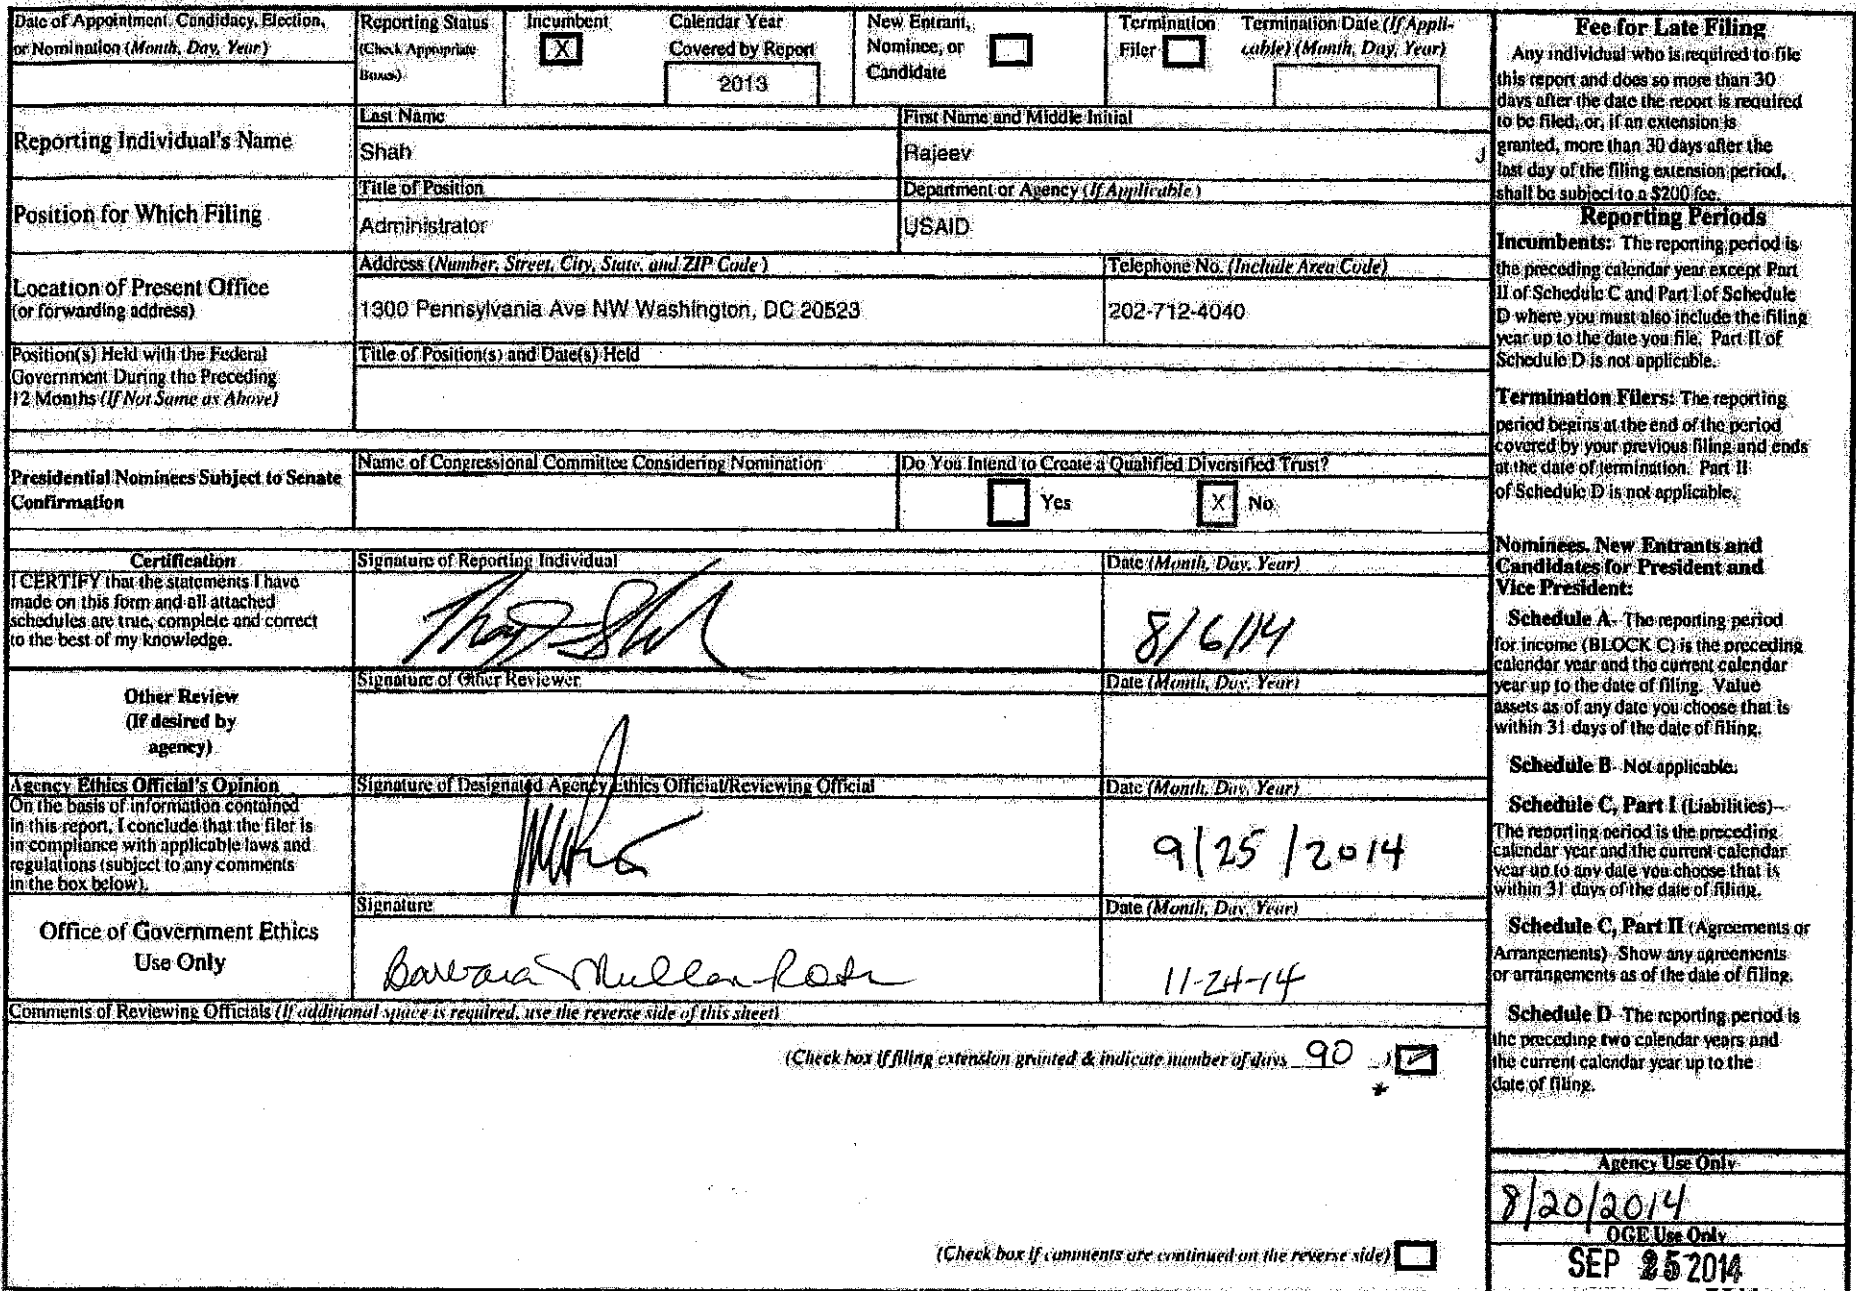 Date of Appointment, Candidacy, Election,
or Nomination (Month, Day, Year)
Reporting Status
(Check Appropriate
Boxes)
Incumbent
X
Calendar Year
Covered by Report
2013
New Entrant,
Nominee, or
Candidate
Termination
Filer
Termination Date (If Appli-
cable) (Month, Day, Year)
Reporting Individual's Name
Last Name
Shah
First Name and Middle Initial
Rajeev J
Position for Which Filing
Title of Position
Administrator
Department or Agency (If Applicable)
USAID
Location of Present Office
(or forwarding address)
Address (Number, Street, City, State, and ZIP Code)
1300 Pennsylvania Ave NW Washington, DC 20523
Telephone No. (Include Area Code)
202-712-4040
Position(s) Held with the Federal
Government During the Preceding
12 Months (If Not Same as Above)
Title of Position(s) and Date(s) Held
Presidential Nominees Subject to Senate
Confirmation
Name of Congressional Committee Considering Nomination
Do You Intend to Create a Qualified Diversified Trust?
Yes
X No
Certification
I CERTIFY that the statements I have
made on this form and all attached
schedules are true, complete and correct
to the best of my knowledge.
Signature of Reporting Individual
Date (Month, Day, Year)
8/6/14
Other Review
(If desired by
agency)
Signature of Other Reviewer
Date (Month, Day, Year)
Agency Ethics Official's Opinion
On the basis of information contained
in this report, I conclude that the filer is
in compliance with applicable laws and
regulations (subject to any comments
in the box below).
Signature of Designated Agency Ethics Official/Reviewing Official
Date (Month, Day, Year)
9/25/2014
Office of Government Ethics
Use Only
Signature
Barbara Mullen-Roth
Date (Month, Day, Year)
11-24-14
Comments of Reviewing Officials (If additional space is required, use the reverse side of this sheet)
(Check box if filing extension granted & indicate number of days 90 )
*
(Check box if comments are continued on the reverse side)
Fee for Late Filing
Any individual who is required to file
this report and does so more than 30
days after the date the report is required
to be filed, or, if an extension is
granted, more than 30 days after the
last day of the filing extension period,
shall be subject to a $200 fee.
Reporting Periods
Incumbents: The reporting period is
the preceding calendar year except Part
II of Schedule C and Part I of Schedule
D where you must also include the filing
year up to the date you file. Part II of
Schedule D is not applicable.
Termination Filers: The reporting
period begins at the end of the period
covered by your previous filing and ends
at the date of termination. Part II
of Schedule D is not applicable.
Nominees, New Entrants and
Candidates for President and
Vice President:
Schedule A- The reporting period
for income (BLOCK C) is the preceding
calendar year and the current calendar
year up to the date of filing. Value
assets as of any date you choose that is
within 31 days of the date of filing.
Schedule B- Not applicable.
Schedule C, Part I (Liabilities)--
The reporting period is the preceding
calendar year and the current calendar
year up to any date you choose that is
within 31 days of the date of filing.
Schedule C, Part II (Agreements or
Arrangements)- Show any agreements
or arrangements as of the date of filing.
Schedule D- The reporting period is
the preceding two calendar years and
the current calendar year up to the
date of filing.
Agency Use Only
8/20/2014
OGE Use Only
SEP 25 2014